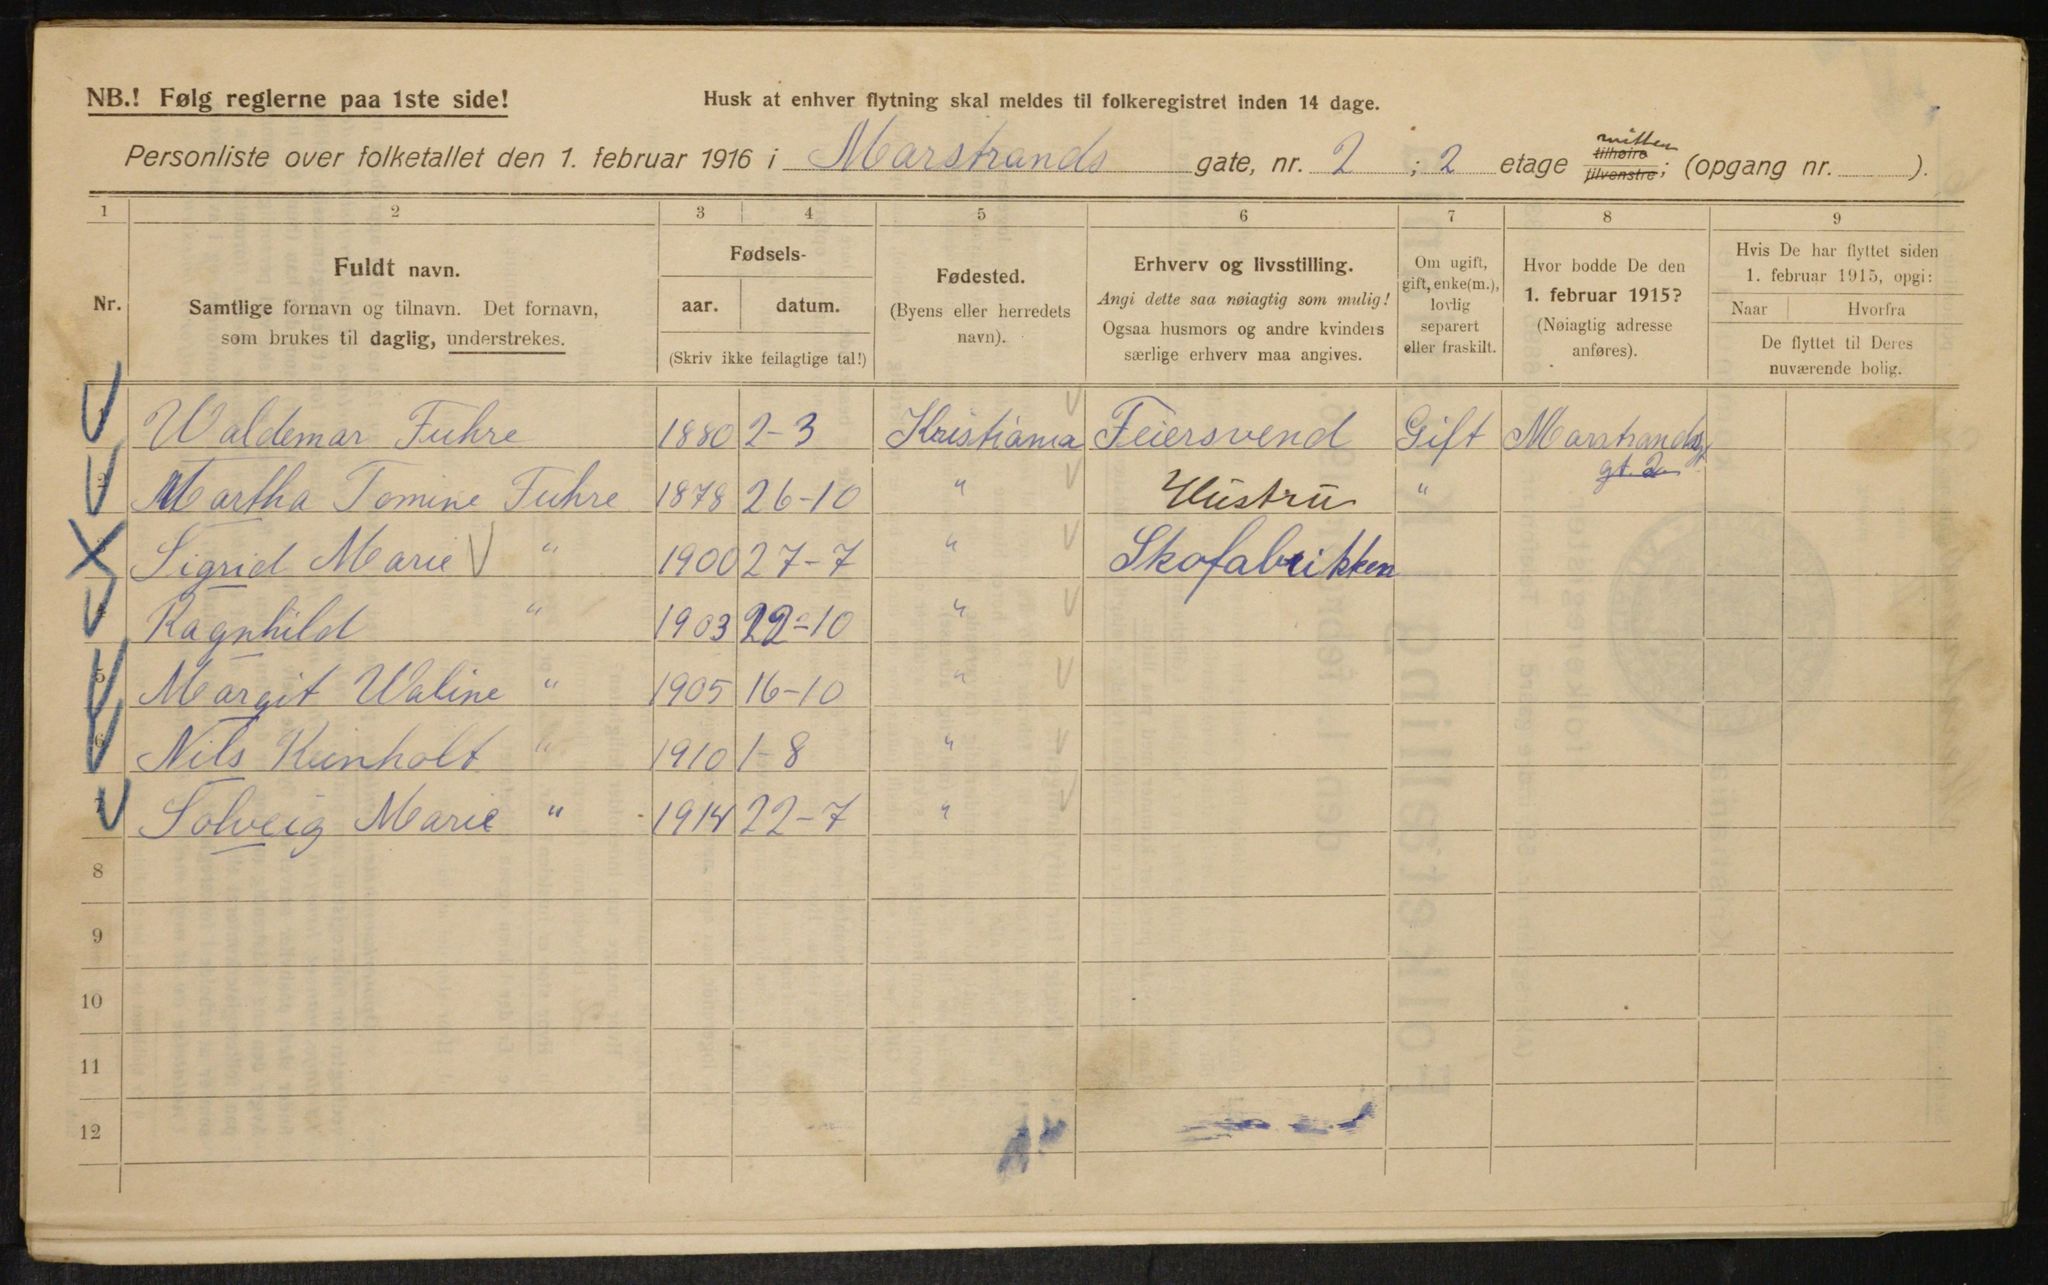 NB.! Følg reglerne paa 1ste side!
Husk at enhver flytning skal meldes til folkeregistret inden 14 dage.
Personliste over folketallet den 1. februar 1916 i Marstrands gate, nr. 2 ; 2 etage mitten tilhøire tilvenstre; (opgang nr. ).
1 2 3 4 5 6 7 8 9
Nr.
Fuldt navn.
Samtlige fornavn og tilnavn. Det fornavn,
som brukes til daglig, understrekes.
Fødsels-
aar. datum.
(Skriv ikke feilagtige tal!)
Fødested.
(Byens eller herredets
navn).
Erhverv og livsstilling.
Angi dette saa nøiagtig som mulig!
Ogsaa husmors og andre kvinders
særlige erhverv maa angives.
Om ugift,
gift, enke(m.),
lovlig
separert
eller fraskilt.
Hvor bodde De den
1. februar 1915?
(Nøiagtig adresse
anføres).
Hvis De har flyttet siden
1. februar 1915, opgi:
Naar Hvorfra
De flyttet til Deres
nuværende bolig.
1 Waldemar Fuhre 1880 2-3 Kristiania Feiersvend Gift Marstrands
gt. 2
2 Martha Tomine Fuhre 1878 26-10 " Hustru "
3 Sigrid Marie " 1900 27-7 " Skofabrikken
4 Ragnhild " 1903 22-10 "
5 Margit Waline " 1905 16-10 "
6 Nils Reinholt " 1910 1-8 "
7 Solveig Marie " 1914 22-7 "
8
9
10
11
12